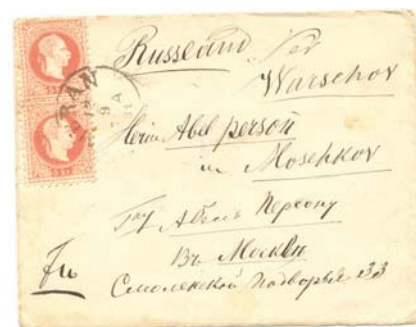 Russland Per
Warschov
Herrn Abel person
in Moschkov
Гну Абель Персону
Въ Москвѣ
Смоленской Подворья 33